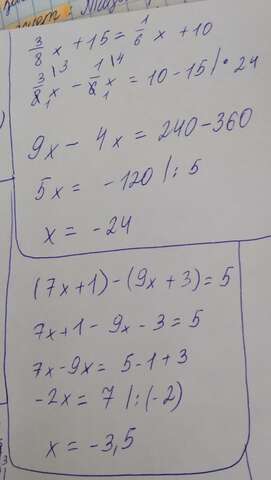 3/8 x + 15 = 1/6 x + 10
3\3/8 x - 1\4/6 x = 10 - 15 |· 24
9x - 4x = 240 - 360
5x = -120 |: 5
x = -24
(7x+1) - (9x+3) = 5
7x+1 - 9x - 3 = 5
7x - 9x = 5 - 1 + 3
-2x = 7 |: (-2)
x = -3,5